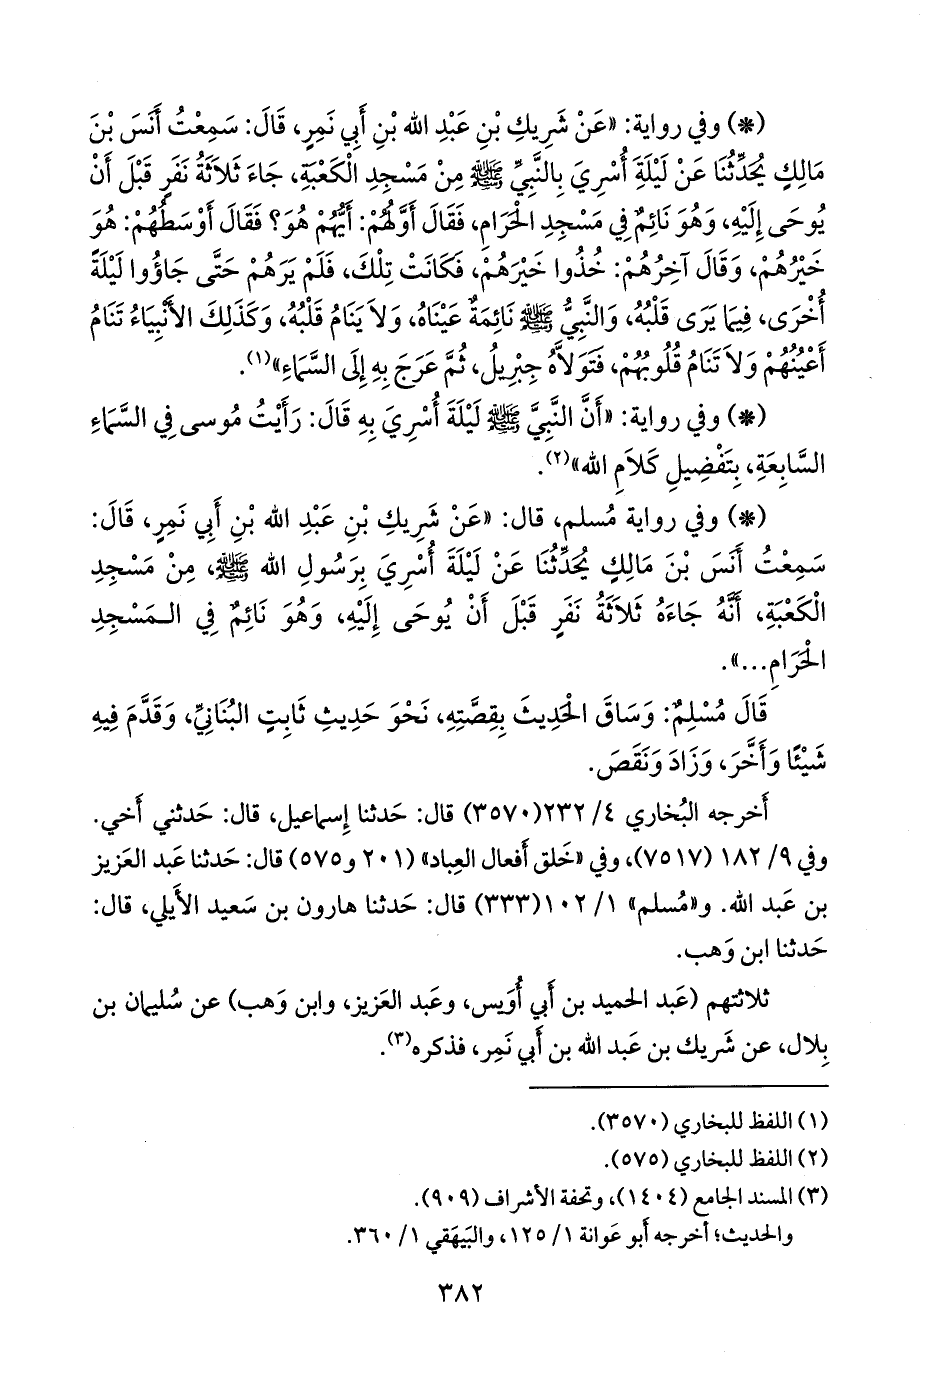 (*) وفي رواية: «عَنْ شَرِيكِ بْنِ عَبْدِ الله بْنِ أَبِي نَمِرٍ، قَالَ: سَمِعْتُ أَنَسَ بْنَ
مَالِكٍ يُحَدِّثُنَا عَنْ لَيْلَةِ أُسْرِيَ بِالنَّبِيِّ ﷺ مِنْ مَسْجِدِ الْكَعْبَةِ، جَاءَ ثَلاَثَةُ نَفَرٍ قَبْلَ أَنْ
يُوحَى إِلَيْهِ، وَهُوَ نَائِمٌ فِي مَسْجِدِ الْحَرَامِ، فَقَالَ أَوَّلُهُمْ: أَيُّهُمْ هُوَ؟ فَقَالَ أَوْسَطُهُمْ: هُوَ
خَيْرُهُمْ، وَقَالَ آخِرُهُمْ: خُذُوا خَيْرَهُمْ، فَكَانَتْ تِلْكَ، فَلَمْ يَرَهُمْ حَتَّى جَاؤُوا لَيْلَةً
أُخْرَى، فِيمَا يَرَى قَلْبُهُ، وَالنَّبِيُّ ﷺ نَائِمَةٌ عَيْنَاهُ، وَلاَ يَنَامُ قَلْبُهُ، وَكَذَلِكَ الأَنْبِيَاءُ تَنَامُ
أَعْيُنُهُمْ وَلاَ تَنَامُ قُلُوبُهُمْ، فَتَوَلاَّهُ جِبْرِيلُ، ثُمَّ عَرَجَ بِهِ إِلَى السَّمَاءِ»(١).
(*) وفي رواية: «أَنَّ النَّبِيَّ ﷺ لَيْلَةَ أُسْرِيَ بِهِ قَالَ: رَأَيْتُ مُوسى فِي السَّمَاءِ
السَّابِعَةِ، بِتَفْضِيلِ كَلاَمِ الله»(٢).
(*) وفي رواية مُسلم، قال: «عَنْ شَرِيكِ بْنِ عَبْدِ الله بْنِ أَبِي نَمِرٍ، قَالَ:
سَمِعْتُ أَنَسَ بْنَ مَالِكٍ يُحَدِّثُنَا عَنْ لَيْلَةِ أُسْرِيَ بِرَسُولِ الله ﷺ، مِنْ مَسْجِدِ
الْكَعْبَةِ، أَنَّهُ جَاءَهُ ثَلاَثَةُ نَفَرٍ قَبْلَ أَنْ يُوحَى إِلَيْهِ، وَهُوَ نَائِمٌ فِي الْمَسْجِدِ
الْحَرَامِ...».
قَالَ مُسْلِمٌ: وَسَاقَ الْحَدِيثَ بِقِصَّتِهِ، نَحْوَ حَدِيثِ ثَابِتٍ البُنَانِيِّ، وَقَدَّمَ فِيهِ
شَيْئًا وَأَخَّرَ، وَزَادَ وَنَقَصَ.
أَخرجه البُخاري ٤/ ٢٣٢(٣٥٧٠) قال: حَدثنا إسماعيل، قال: حَدثني أَخي.
وفي ٩/ ١٨٢ (٧٥١٧)، وفي «خَلق أَفعال العِباد» (٢٠١ و٥٧٥) قال: حَدثنا عَبد العَزيز
بن عَبد الله. و«مُسلم» ١/ ١٠٢(٣٣٣) قال: حَدثنا هارون بن سَعيد الأَيلي، قال:
حَدثنا ابن وَهب.
ثلاثتهم (عَبد الحميد بن أَبي أُوَيس، وعَبد العَزيز، وابن وَهب) عن سُليمان بن
بِلال، عن شَريك بن عَبد الله بن أَبي نَمِر، فذكره(٣).
(١) اللفظ للبخاري (٣٥٧٠).
(٢) اللفظ للبخاري (٥٧٥).
(٣) المسند الجامع (١٤٠٤)، وتحفة الأشراف (٩٠٩).
والحديث؛ أخرجه أَبو عَوانة ١/ ١٢٥، والبَيهَقي ١/ ٣٦٠.
٣٨٢